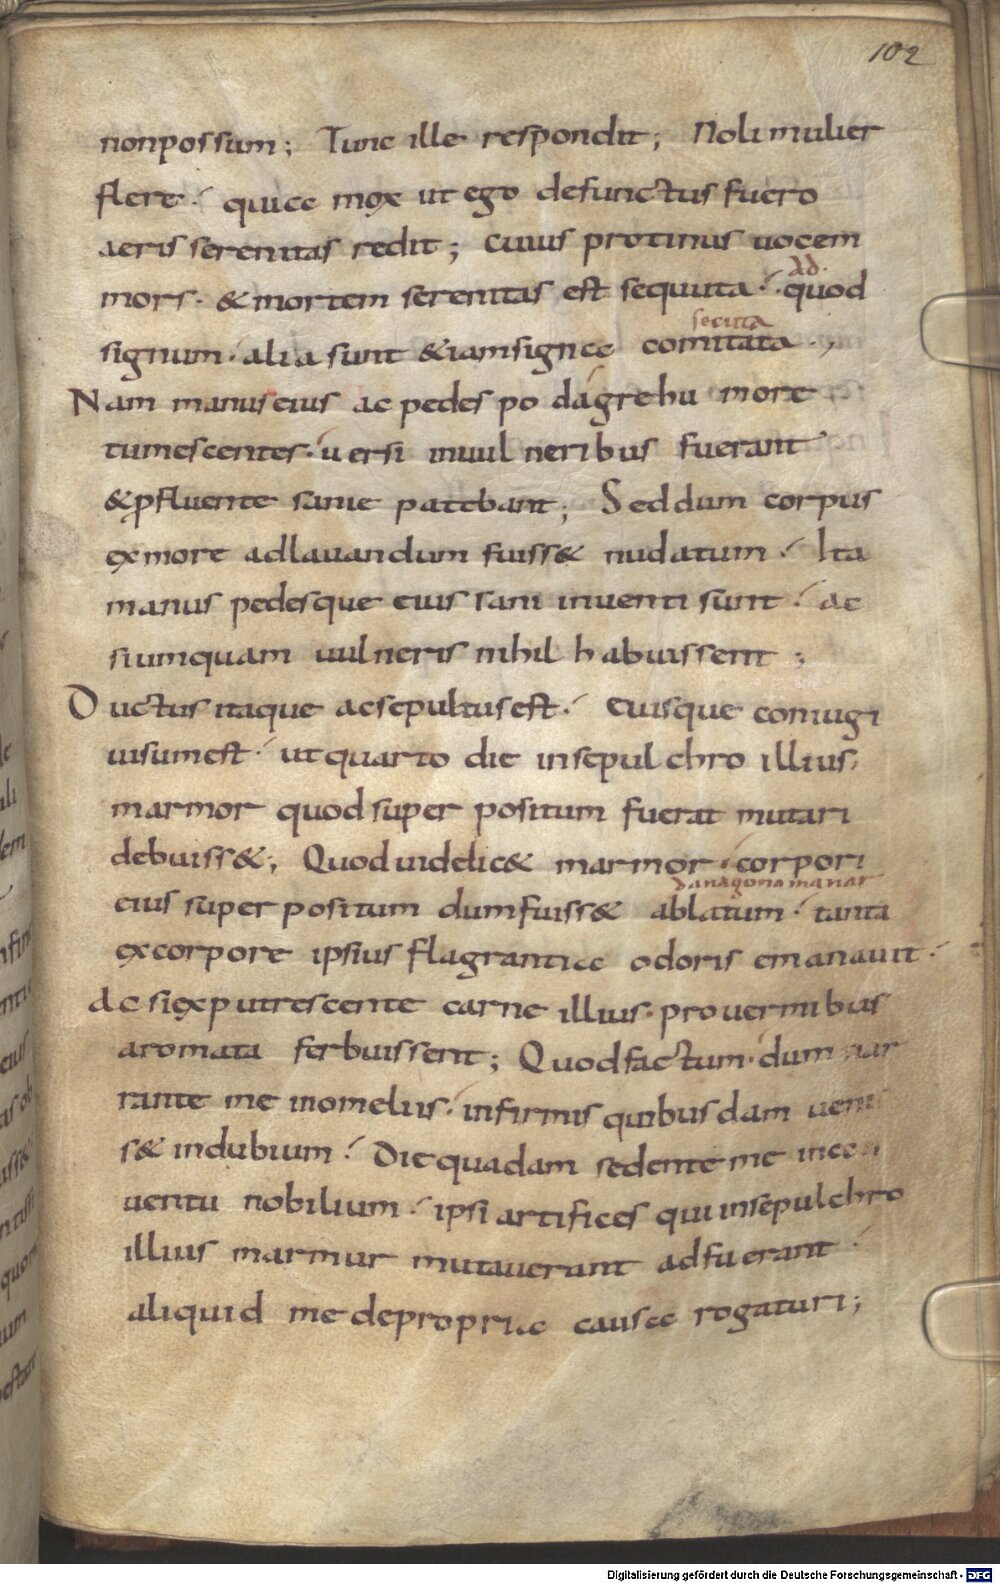 102
nonpossum; Tunc ille respondit; Noli mulier
flere· quia mox ut ego defunctus fuero
aeris serenitas redit; Cuius protinus uocem
mors· & mortem serenitas est sequuta· quod
ad·
signum· alia sunt &iam signa comitata·,
secuta
Nam manus eius ac pedes po dagre hu more
tumescentes· uersi inuul neribus fuerant
&pfluente sanie patebant; Sed dum corpus
exmore adlauandum fuiss& nudatum· Ita
manus pedesque eius sani inuenti sunt· ac
siumquam uulneris nihil habuissent;
Ductus itaque acsepultus est· Euisque coniugi
uisumest· ut quarto die insepul chro illius,
marmor quod super positum fuerat mutari
debuiss&; Quod uidelic& marmor· corpori
eius super positum dumfuiss& ablatum· tanta
excorpore ipsius flagrantia odoris emanauit·
ac siexputrescente carne illius· prouermibus
aromata ferbuissent; Quodfactum· dum nar
rante me inomeliis· infirmis quibusdam ueni
s& indubium· Die quadam sedente me in
uentu nobilium· ipsi artifices qui insepulchro
illius marmur mutauerunt adfuerant·
aliquid me depropria causa rogaturi;
Digitalisierung gefördert durch die Deutsche Forschungsgemeinschaft - DFG